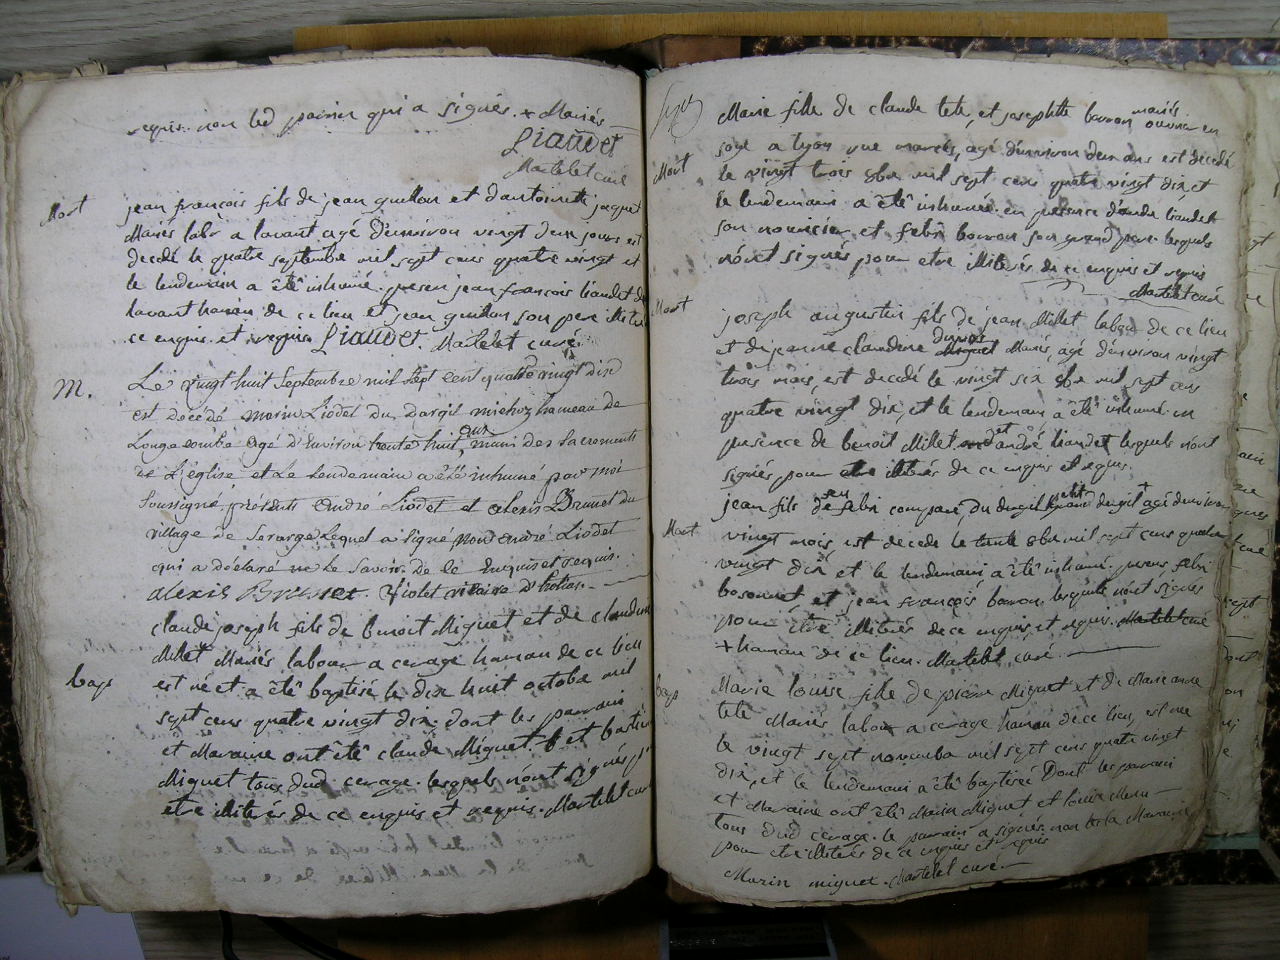 requis. non led parrin qui a signés. + Mariés
Liaudet
Martelet curé
Mort
jean françois fils de jean guillon et d'antoinette jaquet
Mariés labr a lavant agé d'environ vingt deux jours est
decedé le quatre septembre mil sept cens quatre vingt et
le lendemain a étê inhumé. presen jean françois liaudet de
lavant hameau de ce lieu et jean guillon son pere
ce enquis et requis Liaudet. Martelet curé
M.
Le vingt huit Septembre mil Sept cent quatre vingt dix
est décédé marin Liodet du Dargil michoz hameau de
Longecombe agé d'Environ trente huit ans, muni des sacrements
de L'église et Le Lendemain a été inhumé par moi
Soussigné, présents André Liodet et alexis Brunet du
village de Lequel a signé, non André Liodet
qui a déclaré ne le savoir de ce Enquis et requis.
alexis Brunet. Violet vicaire d'hotian.
claude joseph fils de benoit Miguet et de claudine
Milet Mariés labour a cerage hamau de ce lieu
bap
est né et a étê baptisé le dix huit octobre mil
sept cens quatre vingt dix. dont les parrain
et Maraine ont étê claude Miguet et
Miguet tous dud cerage. lesquels n'ont signés pr
etre illiterés de ce enquis et requis. Martelet curé
Marie fille de claude tete, et josephtte borron mariés ouvrier en
soye a lyon rue agé d'environ deux ans est decedé
Mort
le vingt trois 8bre mil sept cens quatre vingt dix et
le lendemain a étê inhumée en presence d'andré liaudet
son nouricier et felix borron son grand pere. lesquels
n'ont signés pour etre illiterés de ce enquis et requis
Martelet curé
Mort
joseph augustin fils de jean Milet labour de ce lieu
et de jeanne claudine Miguet Mariés, agé d'environ vingt
trois mois, est decedé le vingt six 8bre mil sept cens
quatre vingt dix, et le lendemain a étê inhumé. en
presence de benoit Milet et andré liaudet lesquels n'ont
signés pour etre illiterés de ce enquis et requis.
jean fils de feu felix compare, du dergil petit dergil + agé d'environ
Mort
vingt mois est decedé le trente 8bre mil sept cens quatre
vingt dix et le lendemain a étê inhumé. presens felix
bosonnet et jean françois borron. lesquels n'ont signés
pour être illiterés de ce enquis et requis. Martelet curé
+ hamau de ce lieu. Martelet, curé.
bap
Marie louise fille de pierre Miguet et de Marie anne
tete Mariés labour a cerage hamau de ce lieu, est née
le vingt sept novembre mil sept cens quatre vingt
dix, et le lendemain a étê baptisée Dont les parrain
et Maraine ont étê Marin Miguet et louise
tous dud cerage. le parrain a signés. non led la Maraine
pour etre illiterés de ce enquis et requis
Marin miguet. Martelet curé